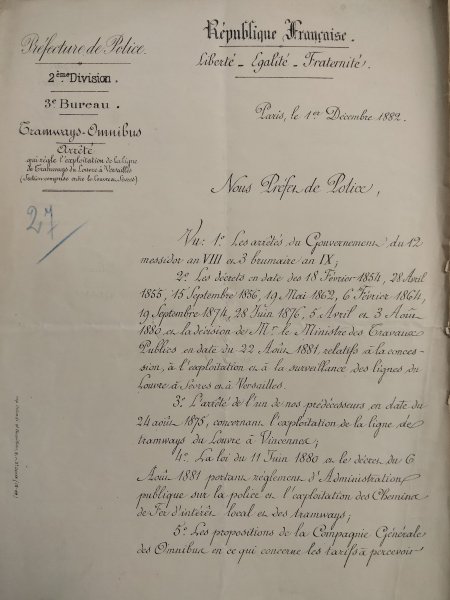 République Française.
Liberté - Egalité - Fraternité.
Préfecture de Police.
2ème Division.
3e Bureau.
Tramways-Omnibus
Arrêté
qui règle l'exploitation de la ligne
de Tramways du Louvre à Versailles
(Section comprise entre le Louvre et Sèvres)
27
Paris, le 1er Décembre 1882.
Nous Préfet de Police,
Vu: 1º Les arrêtés du Gouvernement du 12
messidor an VIII et 3 brumaire an IX;
2º Les décrets en date des 18 Février 1854, 28 Avril
1855, 15 Septembre 1856, 19 Mai 1862, 6 Février 1864,
19 Septembre 1874, 28 Juin 1876, 5 Avril et 3 Août
1880 et la décision de Mr. le Ministre des Travaux
Publics en date du 22 Août 1881, relatifs à la conces-
sion, à l'exploitation et à la surveillance des lignes du
Louvre à Sèvres et à Versailles.
3º L'arrêté de l'un de nos prédécesseurs en date du
24 août 1875, concernant l'exploitation de la ligne de
tramways du Louvre à Vincennes;
4º La loi du 11 Juin 1880 et le décret du 6
Août 1881 portant règlement d'Administration
publique sur la police et l'exploitation des Chemins
de Fer d'intérêt local et des tramways;
5º Les propositions de la Compagnie Générale
des Omnibus en ce qui concerne les tarifs à percevoir